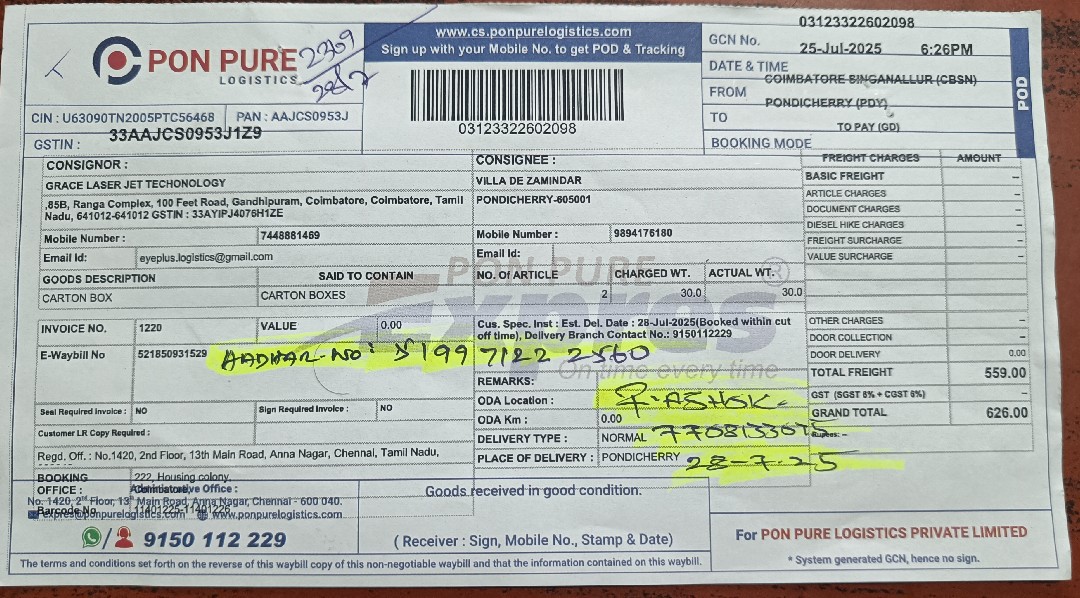 PON PURE
LOGISTICS
2309
28/7
www.cs.ponpurelogistics.com
Sign up with your Mobile No. to get POD & Tracking
03123322602098
GCN No. 03123322602098
DATE & TIME 25-Jul-2025 6:26PM
FROM COIMBATORE SINGANALLUR (CBSN)
TO PONDICHERRY (PDY)
BOOKING MODE TO PAY (GD)
POD
CIN : U63090TN2005PTC56468 PAN : AAJCS0953J
GSTIN : 33AAJCS0953J1Z9
CONSIGNOR :
GRACE LASER JET TECHONOLOGY
,85B, Ranga Complex, 100 Feet Road, Gandhipuram, Coimbatore, Coimbatore, Tamil
Nadu, 641012-641012 GSTIN : 33AYIPJ4076H1ZE
Mobile Number : 7448881469
Email Id: eyeplus.logistics@gmail.com
CONSIGNEE :
VILLA DE ZAMINDAR
PONDICHERRY-605001
Mobile Number : 9894176180
Email Id:
GOODS DESCRIPTION SAID TO CONTAIN NO. Of ARTICLE CHARGED WT. ACTUAL WT.
CARTON BOX CARTON BOXES 2 30.0 30.0
PON PURE
Expres ®
On time every time
INVOICE NO. 1220 VALUE 0.00
E-Waybill No 521850931529
AADHAR-NO: 5199 7122 2560
Seal Required Invoice : NO Sign Required Invoice : NO
Customer LR Copy Required :
Cus. Spec. Inst : Est. Del. Date : 28-Jul-2025(Booked within cut
off time), Delivery Branch Contact No.: 9150112229
REMARKS:
ODA Location : P. ASHOK
ODA Km : 0.00
DELIVERY TYPE : NORMAL 7708133075
PLACE OF DELIVERY : PONDICHERRY 28-7-25
FREIGHT CHARGES AMOUNT
BASIC FREIGHT –
ARTICLE CHARGES –
DOCUMENT CHARGES –
DIESEL HIKE CHARGES –
FREIGHT SURCHARGE –
VALUE SURCHARGE –
OTHER CHARGES –
DOOR COLLECTION –
DOOR DELIVERY 0.00
TOTAL FREIGHT 559.00
GST (SGST 6% + CGST 6%)
GRAND TOTAL 626.00
Rupees: –
Regd. Off. : No.1420, 2nd Floor, 13th Main Road, Anna Nagar, Chennai, Tamil Nadu,
BOOKING OFFICE : 222, Housing colony,
Administrative Office :
No. 1420, 2nd Floor, 13th Main Road, Anna Nagar, Chennai - 600 040.
Barcode No 11401225-11401226
expres@ponpurelogistics.com www.ponpurelogistics.com
9150 112 229
Goods received in good condition.
( Receiver : Sign, Mobile No., Stamp & Date)
For PON PURE LOGISTICS PRIVATE LIMITED
* System generated GCN, hence no sign.
The terms and conditions set forth on the reverse of this waybill copy of this non-negotiable waybill and that the information contained on this waybill.